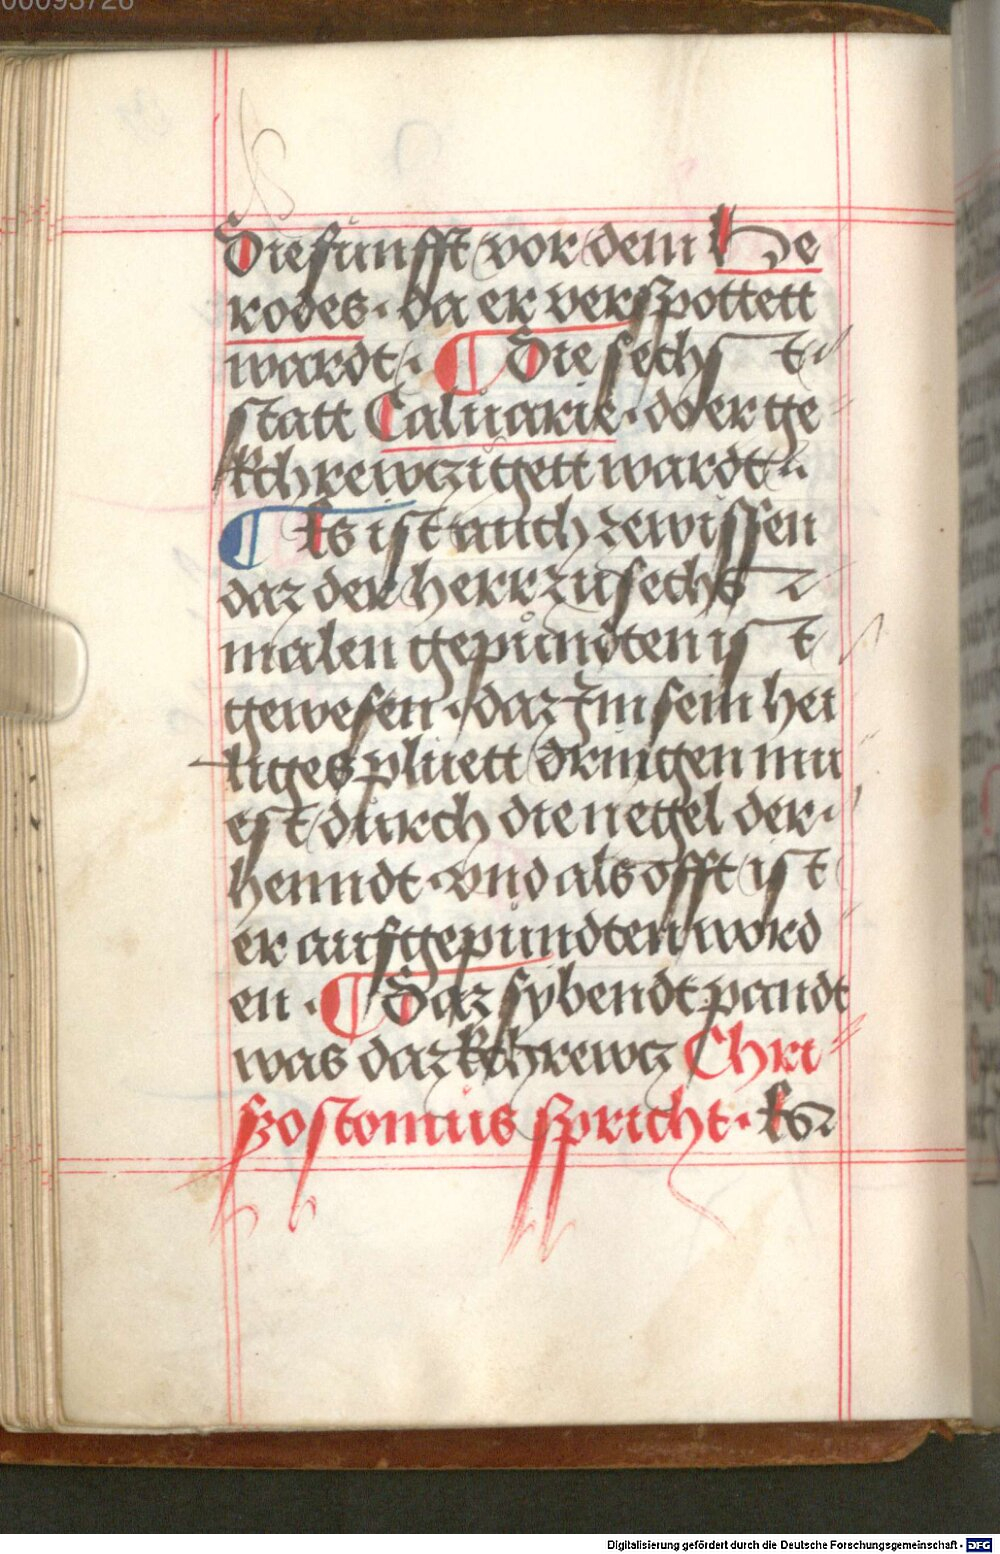 00093726
Die fünfft vor dem He
rodes · da er verspottett
wardt · ¶ Die sechst
statt Caluarie · do er ge
kchrewczigett wardt ·
¶ Es ist auch zewissen
daz der herr zu sechs
malen gepůndten ist
gewesen · daz Im sein hei
liges pluett dringen mu
est durch die negel der
henndt · vnd als offt ist
er aufgepůndten word
en · ¶ Daz sybendt pandt
was daz kchrewcz Chri
sostomus spricht · Es
Digitalisierung gefördert durch die Deutsche Forschungsgemeinschaft - DFG